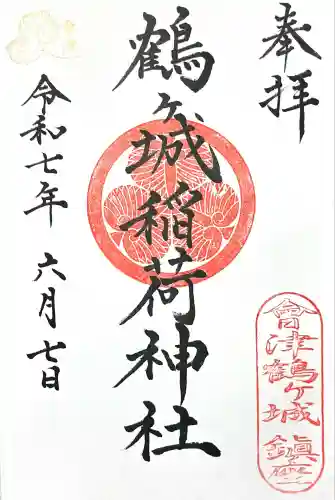 奉拝
鶴ヶ城稲荷神社
令和七年 六月七日
會津鶴ヶ城鎮